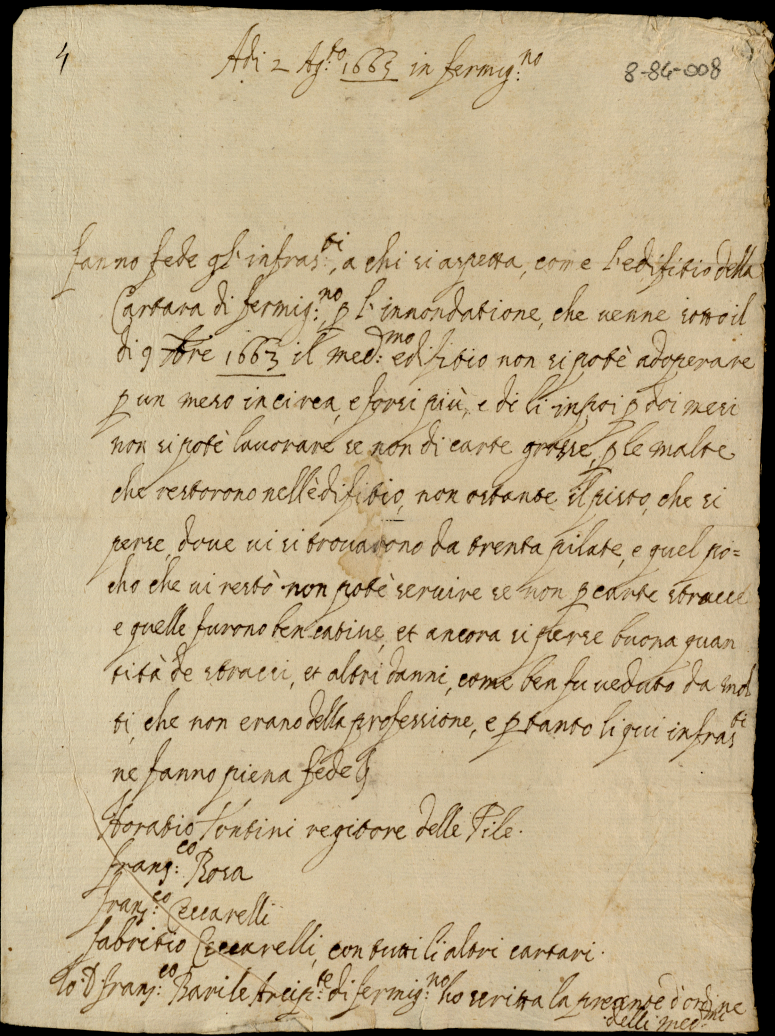 4
Adi 2 Ag:to 1665 in fermig:no
8-84-008
fanno fede gl'infras:ti, a chi si aspetta, come l'edifitio della
Cartara di fermig:no, p l'innondatione, che venne sotto il
di 9 Xbre 1663 il med:mo edifitio non si potè adoperare
p un mese incirca, e forsi più, e di li inpoi p doi mesi
non si potè lavorare se non di carte grosse, p le malte
che restorono nell'edifitio, non ostante il pisto, che si
perse, dove vi si trovavono da trenta pilate, e quel po=
cho che vi restò non potè servire se non p carte stracce
e quelle furono ben cative, et ancora si perse buona quan
tità de stracci, et altri danni, come ben fu veduto da mol
ti, che non erano della professione, e p tanto li qui infras:ti
ne fanno piena fede
Horatio Tontini regitore delle Pile.
franc:co Rosa
fran:co Ceccarelli
fabritio Ceccarelli, con tutti li altri cartari.
Io D fran:co Barile Arcip:te di fermig:no ho scritta la presente d'ordine
delli med:mi